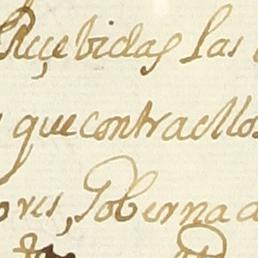 Reçebidas las
que contra ellos
ores, Goberna